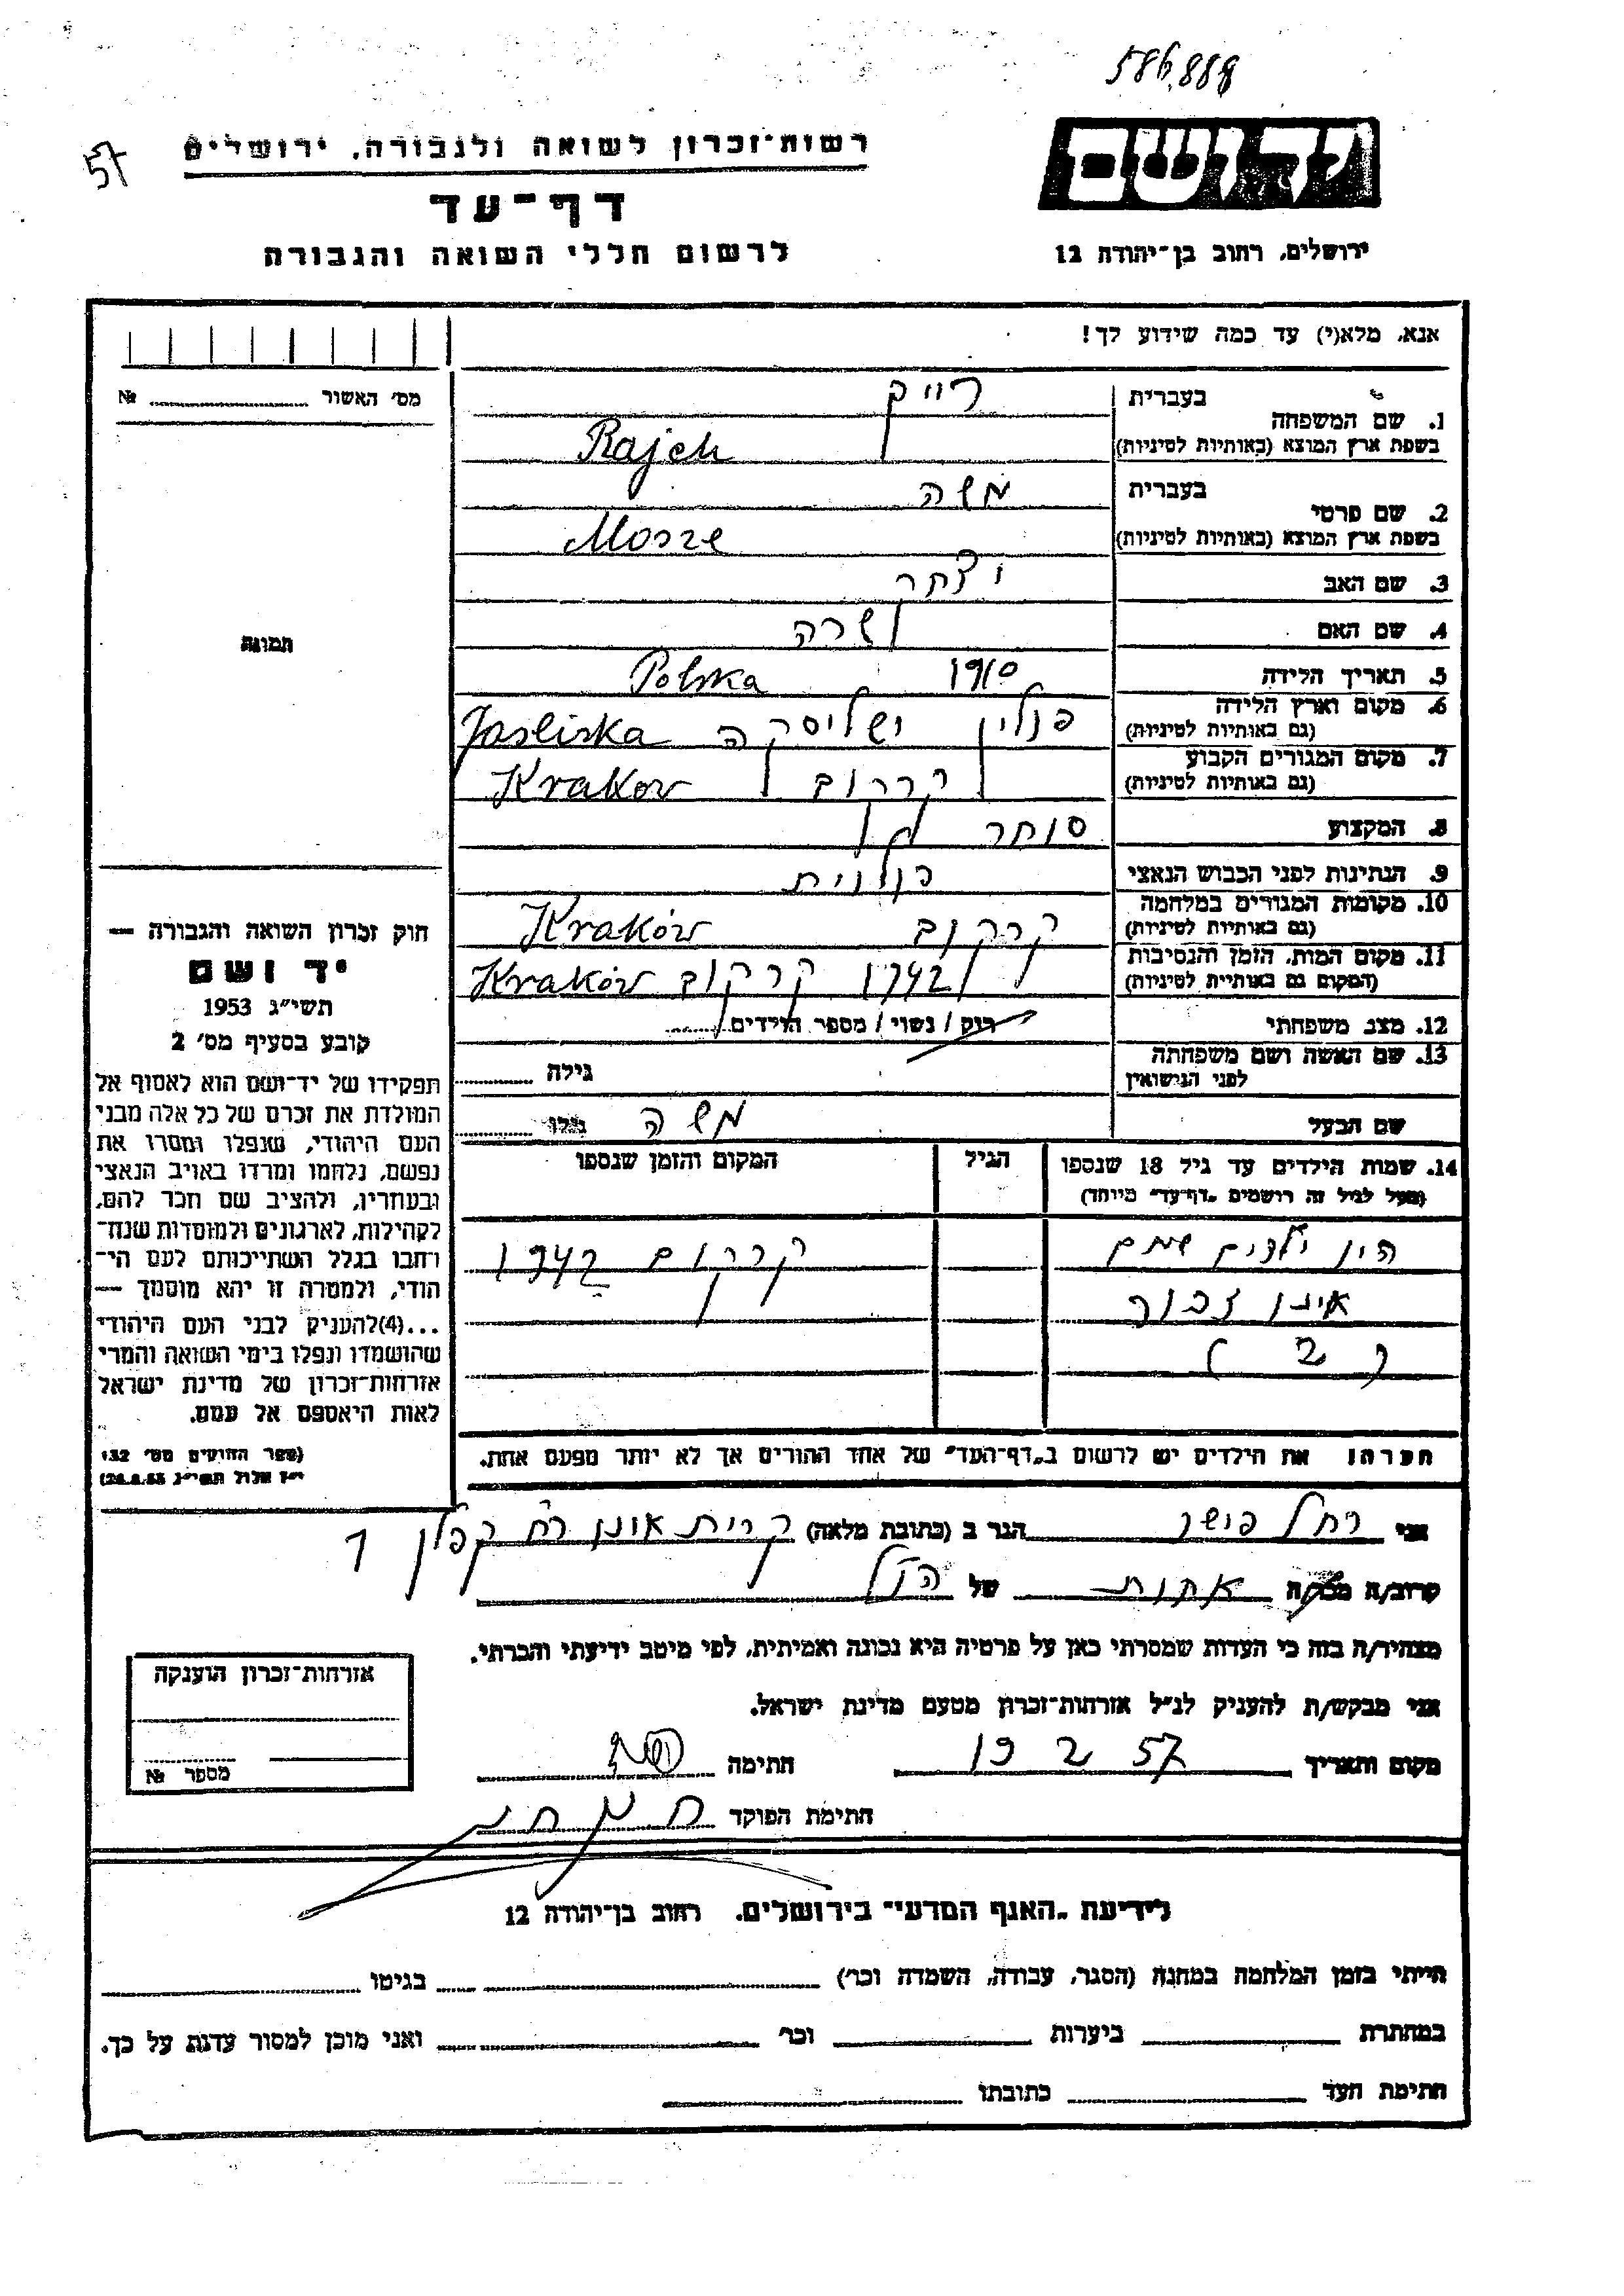 586,888
57
רשות־זכרון לשואה ולגבורה, ירושלים
יד ושם
דף־עד
לרשום חללי השואה והגבורה
ירושלים, רחוב בן־יהודה 12
אנא, מלא(י) עד כמה שידוע לך!
מס׳ האשור №
1. שם המשפחה
בעברית רייך
בשפת ארץ המוצא (באותיות לטיניות) Rajch
2. שם פרטי
בעברית משה
בשפת ארץ המוצא (באותיות לטיניות) Mosze
3. שם האב יצחק
4. שם האם שרה
5. תאריך הלידה 1910
6. מקום וארץ הלידה Polska
(גם באותיות לטיניות) פולין ישליסקה Jasliska
7. מקום המגורים הקבוע
(גם באותיות לטיניות) קרקוב Krakow
8. המקצוע סוחר
9. הנתינות לפני הכבוש הנאצי פולנית
10. מקומות המגורים במלחמה
(גם באותיות לטיניות) קרקוב Kraków
11. מקום המות, הזמן והנסיבות
(המקום גם באותיות לטיניות) 1942 קרקוב Kraków
12. מצב משפחתי רוק / נשוי / מספר הילדים
13. שם האשה ושם משפחתה
לפני הנישואין גילה
שם הבעל משה גילו
14. שמות הילדים עד גיל 18 שנספו הגיל המקום והזמן שנספו
(מעל לגיל זה רושמים „דף־עד״ מיוחד)
היו ילדים שמם קרקוב 1942
אינו זכור
( 2 )
הערה: את הילדים יש לרשום ב„דף־העד״ של אחד ההורים אך לא יותר מפעם אחת.
תמונה
חוק זכרון השואה והגבורה —
יד ושם
תשי״ג 1953
קובע בסעיף מס׳ 2
תפקידו של יד־ושם הוא לאסוף אל
המולדת את זכרם של כל אלה מבני
העם היהודי, שנפלו ומסרו את
נפשם, נלחמו ומרדו באויב הנאצי
ובעוזריו, ולהציב שם וזכר להם,
לקהילות, לארגונים ולמוסדות שנח־
רבו בגלל השתייכותם לעם הי־
הודי, ולמטרה זו יהא מוסמך —
...(4)להעניק לבני העם היהודי
שהושמדו ונפלו בימי השואה והמרי
אזרחות־זכרון של מדינת ישראל
לאות היאספם אל עמם.
(ספר החוקים מס׳ 132,
י״ז אלול תשי״ג 28.8.53)
אני רחל פושר הגר ב (כתובת מלאה) קרית אונו רח קפלן 7
קרוב/ה מכר/ה אחות של הנ״ל
מצהיר/ה בזה כי העדות שמסרתי כאן על פרטיה היא נכונה ואמיתית, לפי מיטב ידיעתי והכרתי.
אני מבקש/ת להעניק לנ״ל אזרחות־זכרון מטעם מדינת ישראל.
מקום ותאריך 19 2 57 חתימה
חתימת הפוקד
אזרחות־זכרון הוענקה
מספר №
לידיעת „האגף המדעי״ בירושלים. רחוב בן־יהודה 12
הייתי בזמן המלחמה במחנה (הסגר, עבודה, השמדה וכו׳) בגיטו
במחתרת ביערות וכו׳ ואני מוכן למסור עדות על כך.
חתימת העד כתובתו